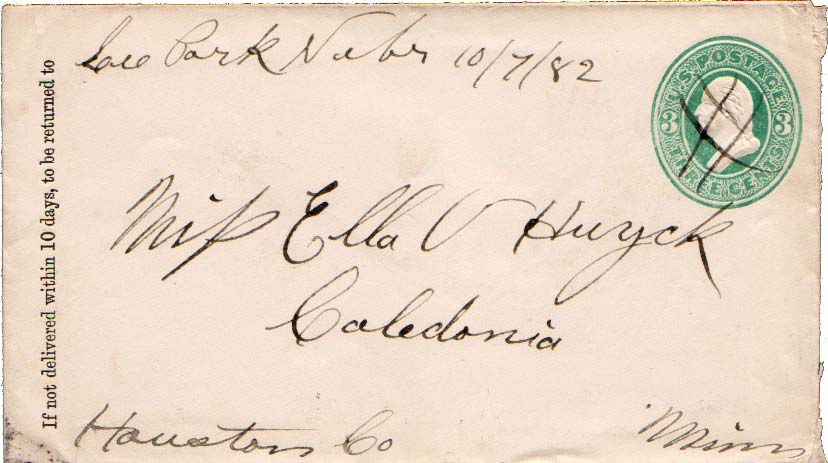 Lee Park Nebr 10/7/82
U.S. POSTAGE
3 3
THREE CENTS
If not delivered within 10 days, to be returned to
Miss Ella V Huyck
Caledonia
Houston Co Minn